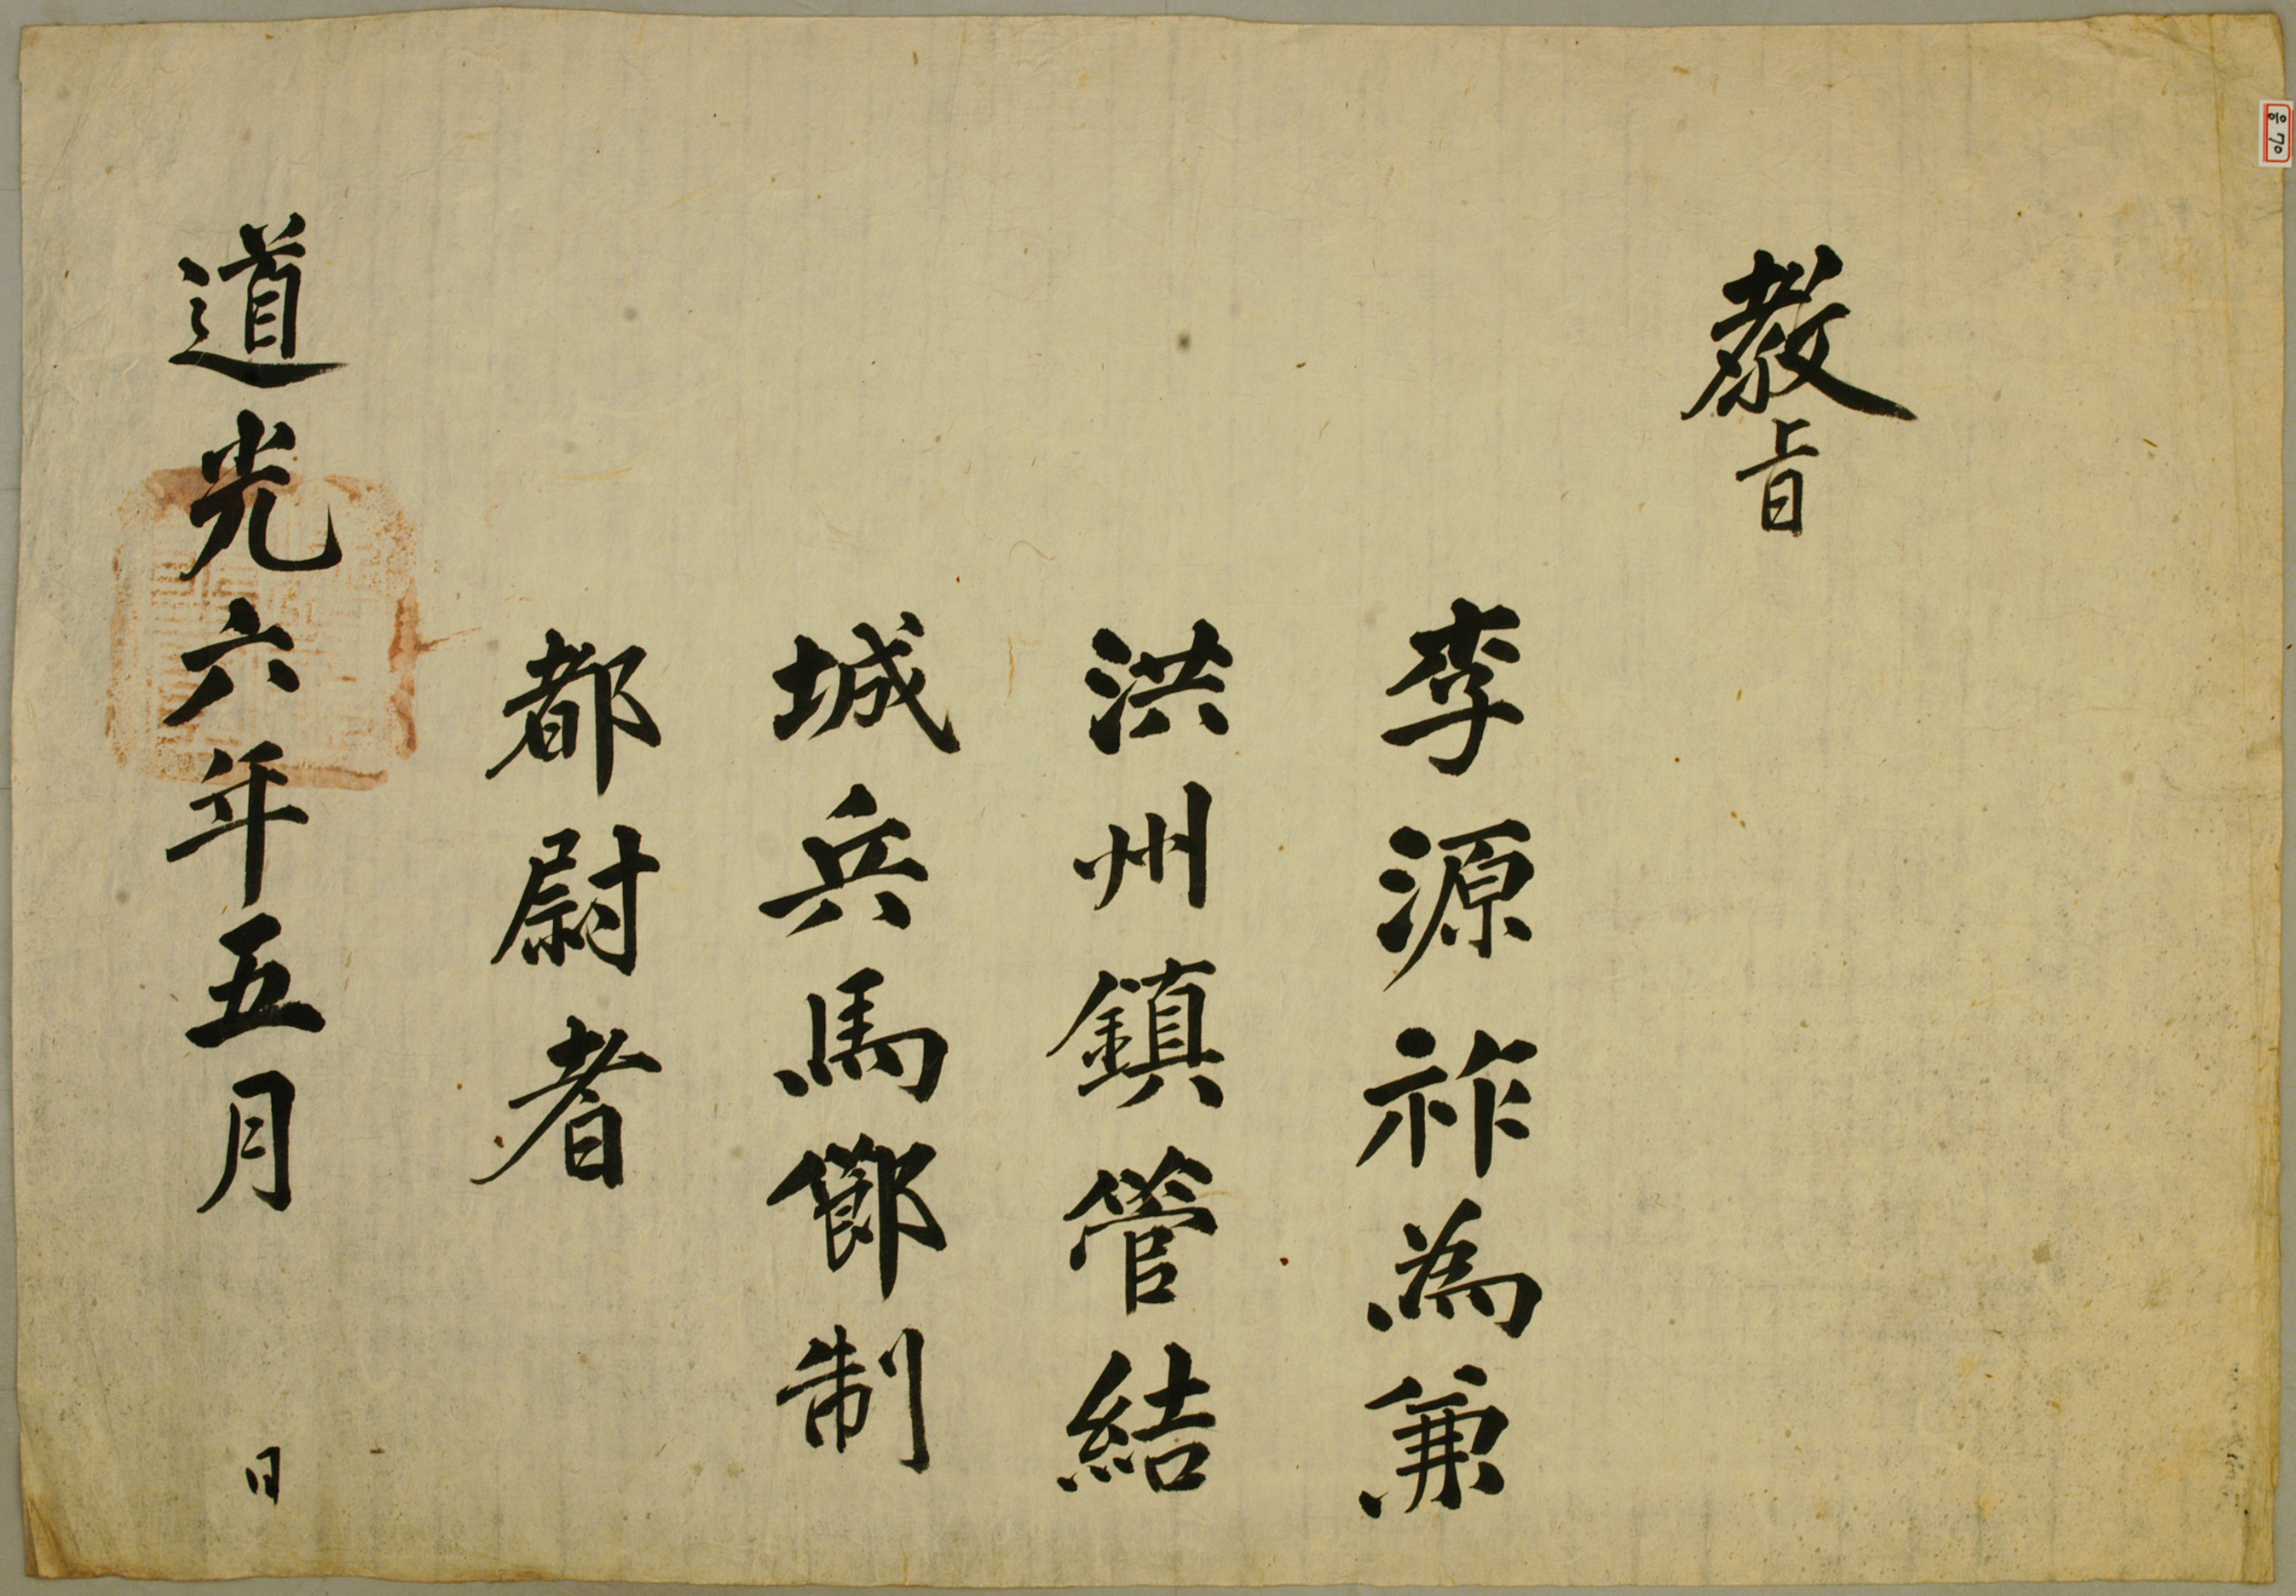 教旨
李源祚為兼
洪州鎮管結
城兵馬節制
都尉者
道光六年五月 日
음 70